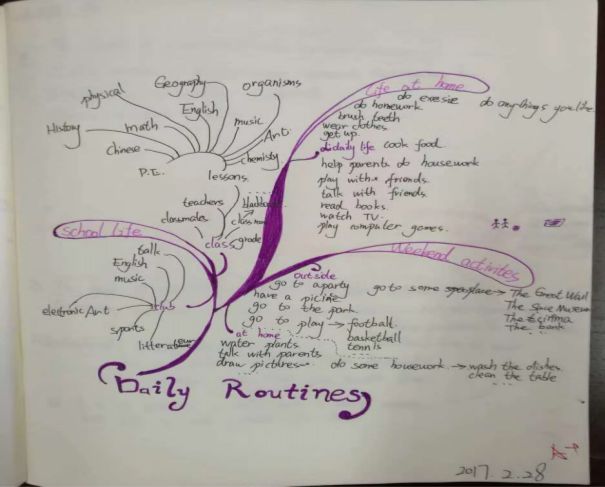 Life at home
do exessie do anythings you like
do homework
brush teeth
wear clothes
get up
daily life cook food
help parents do housework
play with friends
talk with friends
read books
watch TV
play computer games
physical
Geography
organisms
English
music
History
math
Art
Chinese
chemisty
P.E.
lessons
teachers
blackboard
classmates
class room
class grade
School life
talk
English
music
club
electronic Art
sports
litterature
Weekend activites
outside
go to a party
have a picinc
go to the park
go to play → football
basketball
tennis
go to some → The Great Wall
The Space Museum
The Cinima
The bank
at home
water plants
talk with parents
draw pictures
do some housework → wash the dishes
clean the table
Daily Routines
2017.2.28